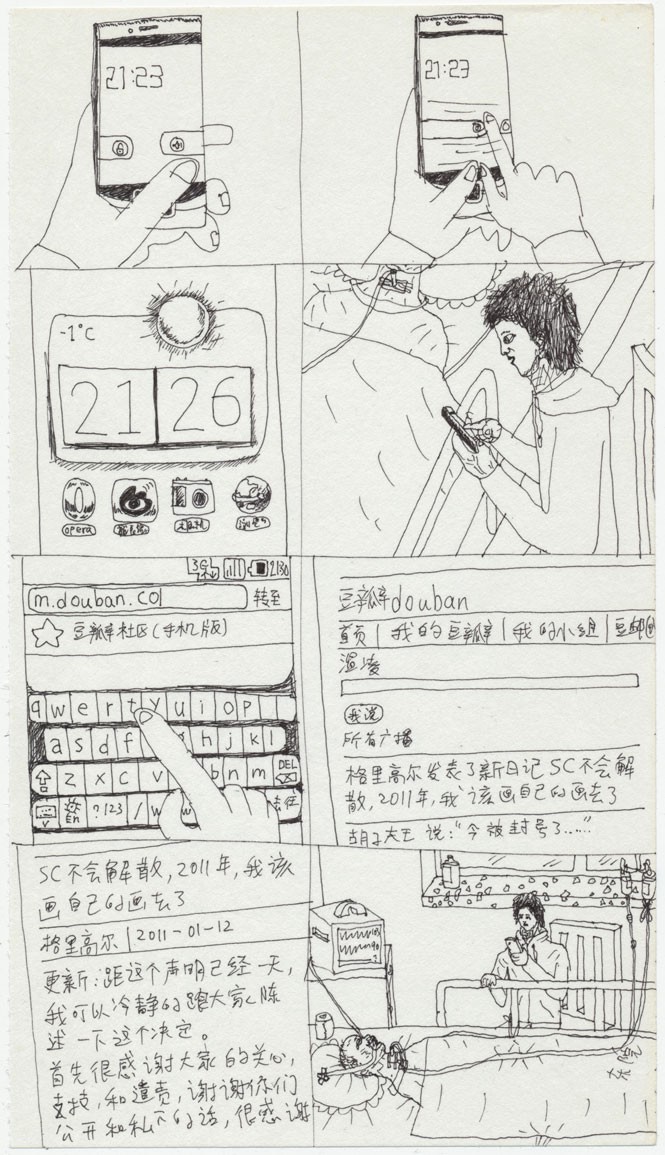 21:23
21:23
-1°C
21 26
opera
3G 2130
m.douban.co 转至
豆瓣社区(手机版)
q w e r t y u i o p
a s d f g h j k l
z x c v b n m DEL
En ?123 / w
豆瓣douban
首页 | 我的豆瓣 | 我的小组 | 豆邮
温凌
我说
所有广播
格里高尔发表了新日记SC不会解
散,2011年,我该画自己的画去了
胡子大王 说:“今被封号了……”
SC不会解散,2011年,我该
画自己的画去了
格里高尔 | 2011-01-12
更新:距这个声明已经一天,
我可以冷静的跟大家陈
述一下这个决定。
首先很感谢大家的关心,
支持,和谴责,谢谢你们
公开和私下的话,很感谢